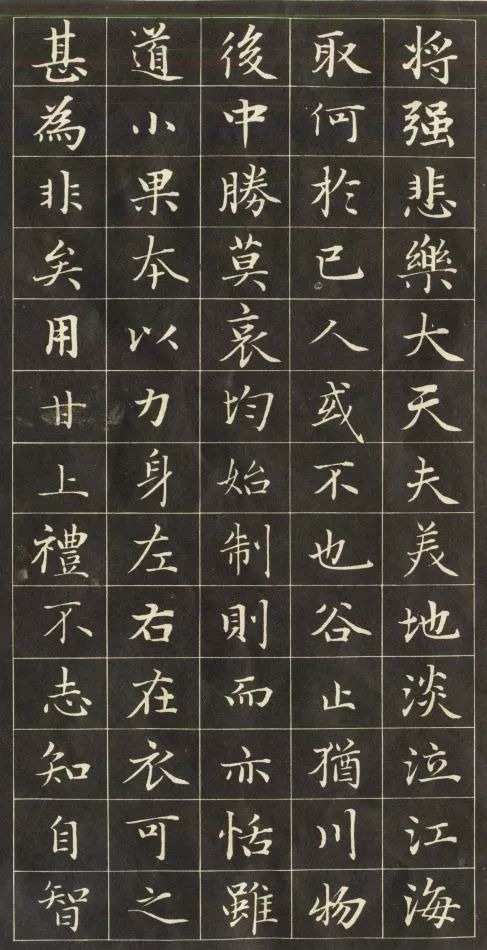 将强悲樂大天夫美地淡泣江海
取何於已人或不也谷止猶川物
後中勝莫哀均始制則而亦恬雖
道小果本以力身左右在衣可之
甚為非矣用甘上禮不志知自智